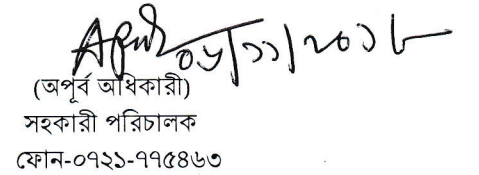 ০৬/১১/২০১৮
(অপূর্ব অধিকারী)
সহকারী পরিচালক
ফোন-০৭২১-৭৭৫৪৬৩